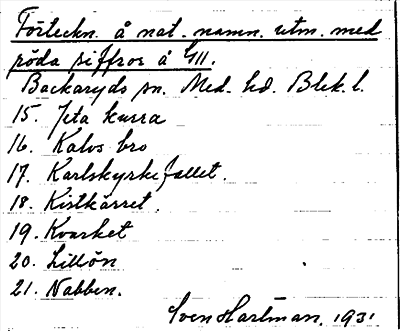 Förteckn. å nat. namn. utm. med
röda siffror å G11.
Backaryds sn. Med. hd. Blek. l.
15. Jeta kurra
16. Kalvs bro
17. Karlskyrkefallet.
18. Kistkärret.
19. Kvarket
20. Lillön
21. Nabben.
Sven Hartman, 1931